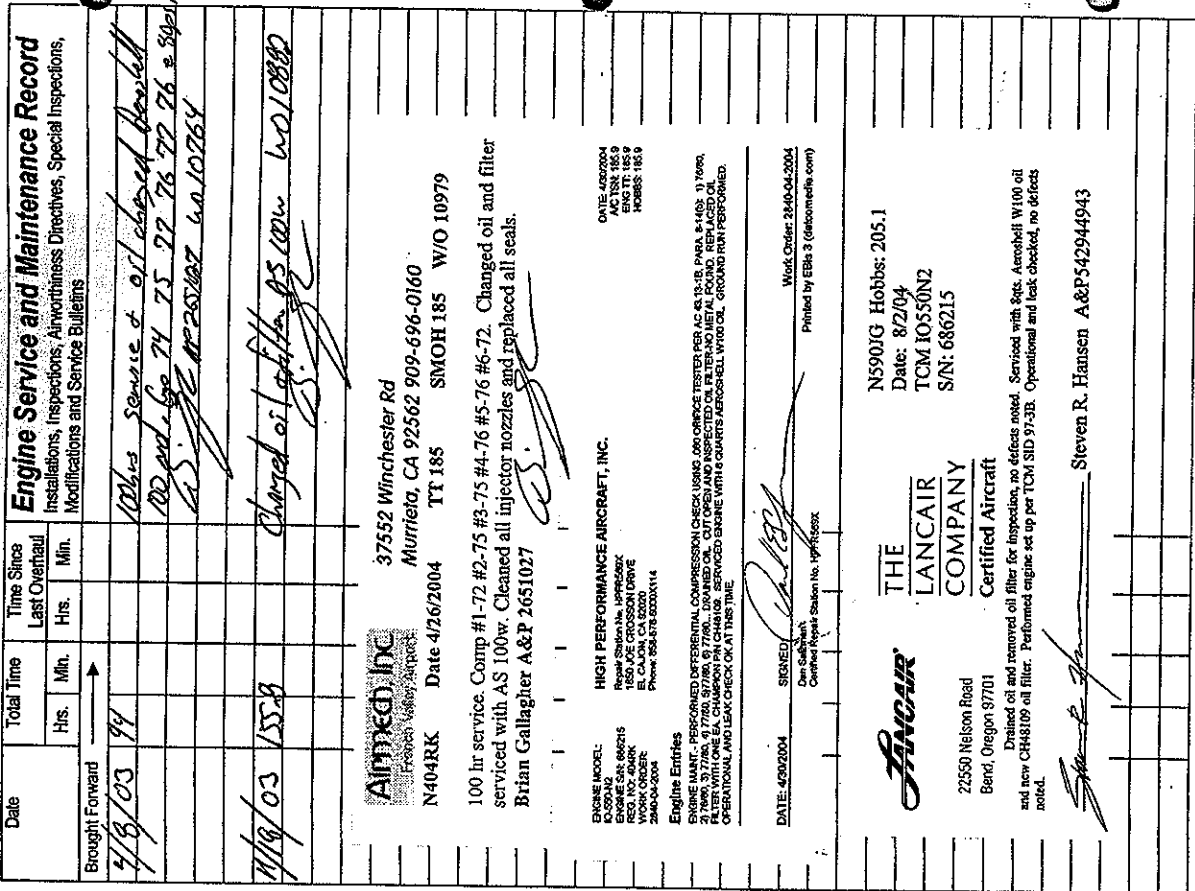 Date
Total Time
Hrs. Min.
Time Since
Last Overhaul
Hrs. Min.
Engine Service and Maintenance Record
Installations, Inspections, Airworthiness Directives, Special Inspections,
Modifications and Service Bulletins
Brought Forward
/8/03 94 100 hrs service & oil changed
100 74 75 77 76 77 76
W010764
11/18/03 155.9 Changed oil & filter AS 100w W010882
Airmech Inc.
French Valley Airport
37552 Winchester Rd
Murrieta, CA 92562 909-696-0160
N404RK Date 4/26/2004 TT 185 SMOH 185 W/O 10979
100 hr service. Comp #1-72 #2-75 #3-75 #4-76 #5-76 #6-72. Changed oil and filter
serviced with AS 100w. Cleaned all injector nozzles and replaced all seals.
Brian Gallagher A&P 2651027
ENGINE MODEL:
IO-550-N2
ENGINE S/N: 686215
REG. NO: 404RK
WORK ORDER:
2840-04-2004
HIGH PERFORMANCE AIRCRAFT, INC.
Repair Station No.
1850 JOE CROSSON DRIVE
EL CAJON, CA 92020
Phone:
DATE: 4/30/2004
A/C TSN: 185.9
ENG TT: 185.9
HOBBS: 185.9
Engine Entries
ENGINE MAINT. - PERFORMED DIFFERENTIAL COMPRESSION CHECK USING .060 ORIFICE TESTER PER AC 43.13-1B, PARA. 8-14(b): 1) 76/80,
2) 76/80, 3) 77/80, 4) 77/80, 5) 77/80, 6) 77/80... DRAINED OIL. CUT OPEN AND INSPECTED OIL FILTER-NO METAL FOUND. REPLACED OIL
FILTER WITH ONE EA. CHAMPION P/N CH48109. SERVICED ENGINE WITH QUARTS AEROSHELL W100 OIL. GROUND RUN PERFORMED.
OPERATIONAL AND LEAK CHECK OK AT THIS TIME.
DATE: 4/30/2004 SIGNED Work Order: 2840-04-2004
Dan
Certified Repair Station No.
Printed by EBis 3 (datcomedia.com)
LANCAIR
22550 Nelson Road
Bend, Oregon 97701
THE
LANCAIR
COMPANY
Certified Aircraft
N590JG Hobbs: 205.1
Date: 8/2/04
TCM IO550N2
S/N: 686215
Drained oil and removed oil filter for inspection, no defects noted. Serviced with 8qts. Aeroshell W100 oil
and new CH48109 oil filter. Performed engine set up per TCM SID 97-3B. Operational and leak checked, no defects
noted.
Steven R. Hansen A&P542944943